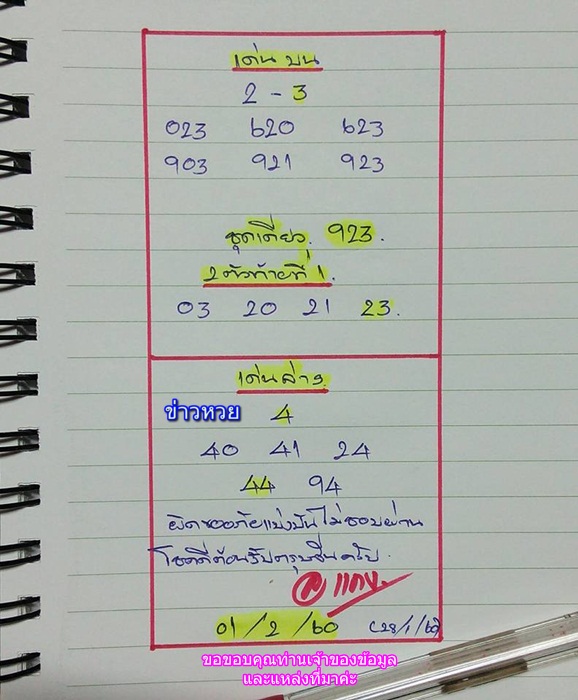 เด่น บน
2 - 3
023 620 623
903 921 923
ชุดเดียว. 923.
2 ตัวท้ายที่ 1.
03 20 21 23.
เด่นล่าง
ข่าวหวย 4
40 41 24
44 94
ผิดขออภัยแบ่งปันไม่ชอบผ่าน
โชคดีต้อนรับตรุษจีนครับ.
01/2/60 (28/1/60)
ขอขอบคุณท่านเจ้าของข้อมูล
และแหล่งที่มาค่ะ